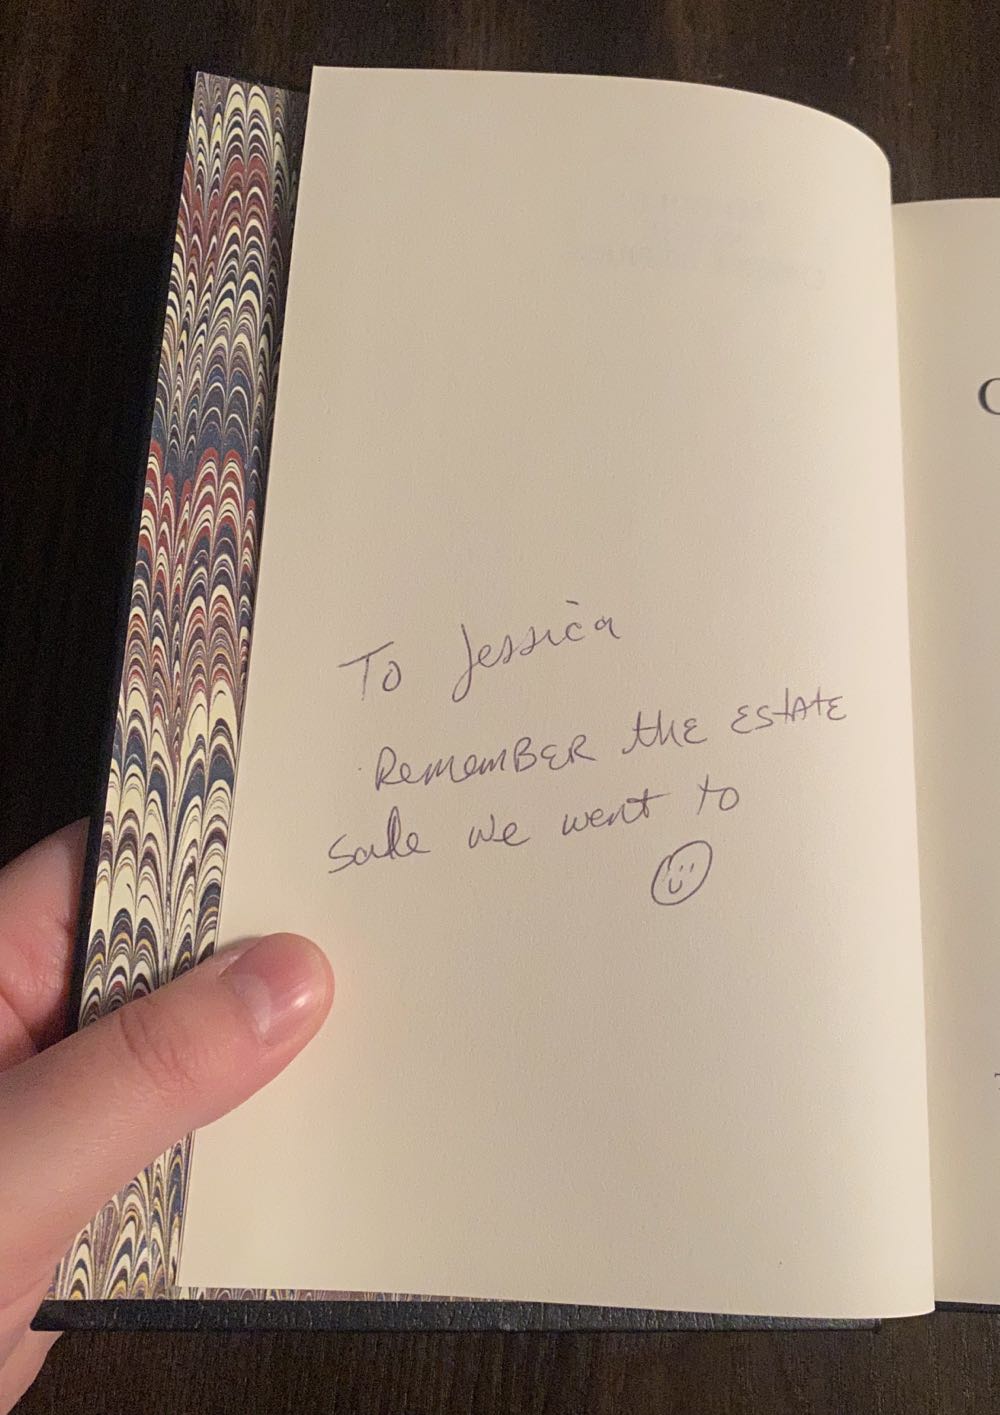 To Jessica
Remember the estate
sale we went to